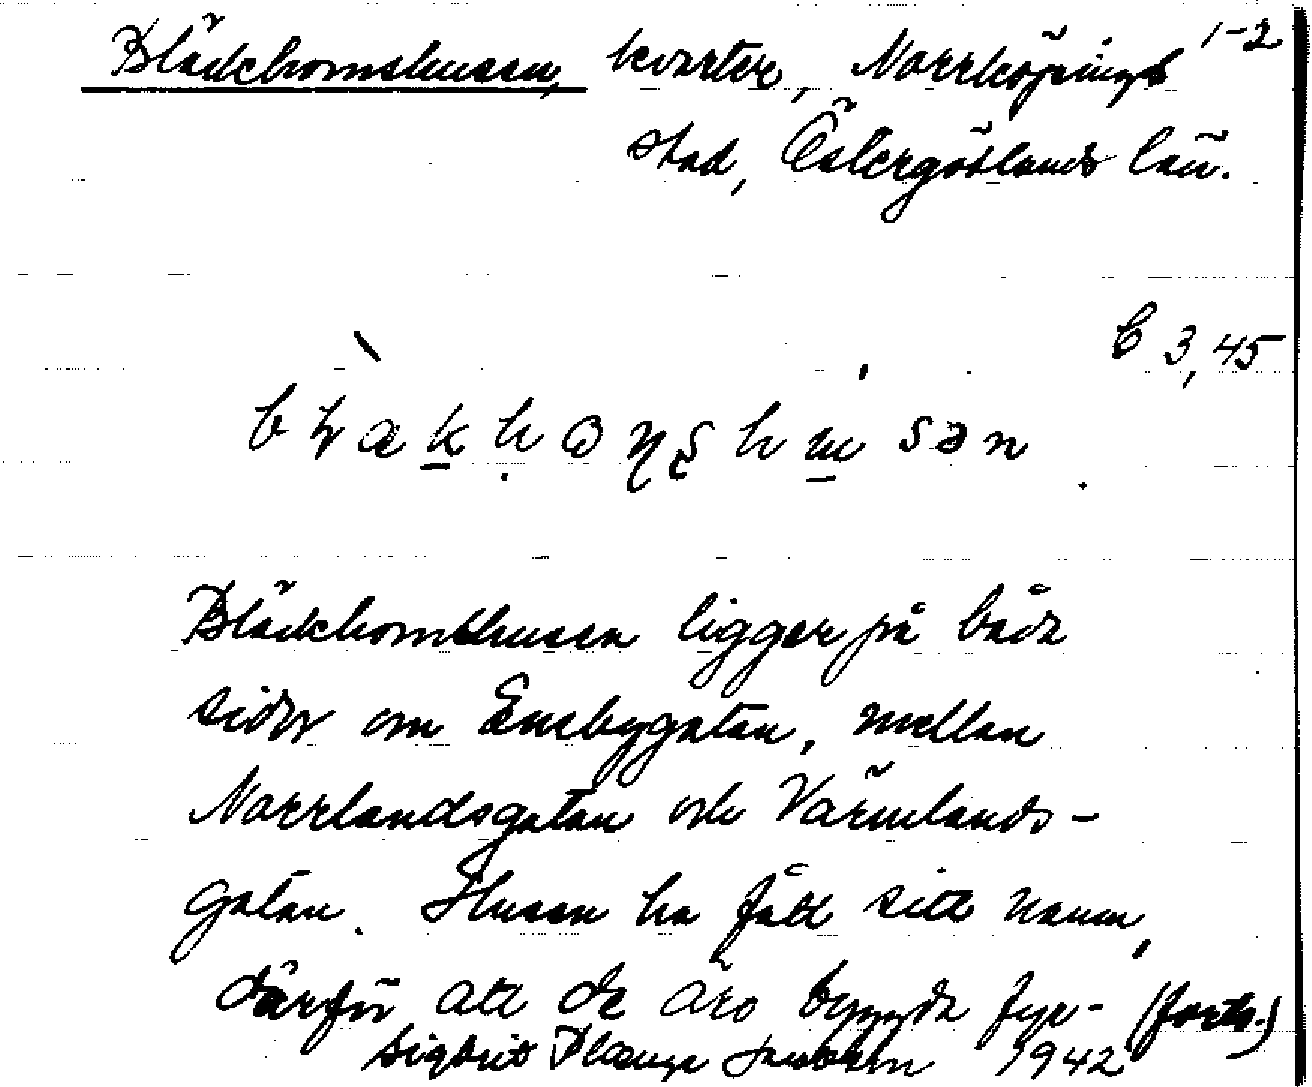 Bläckhornshusen, kvarter, Norrköpings 1-2
stad, Östergötlands län.
C 3,45
Bläckhornshusen ligger på båda
sidor om Enebygatan, mellan
Norrlandsgatan och Värmlands-
gatan. Husen ha fått sitt namn,
därför att de äro byggda fyr- (forts.)
Sigbrit Plænge Jacobson 1942